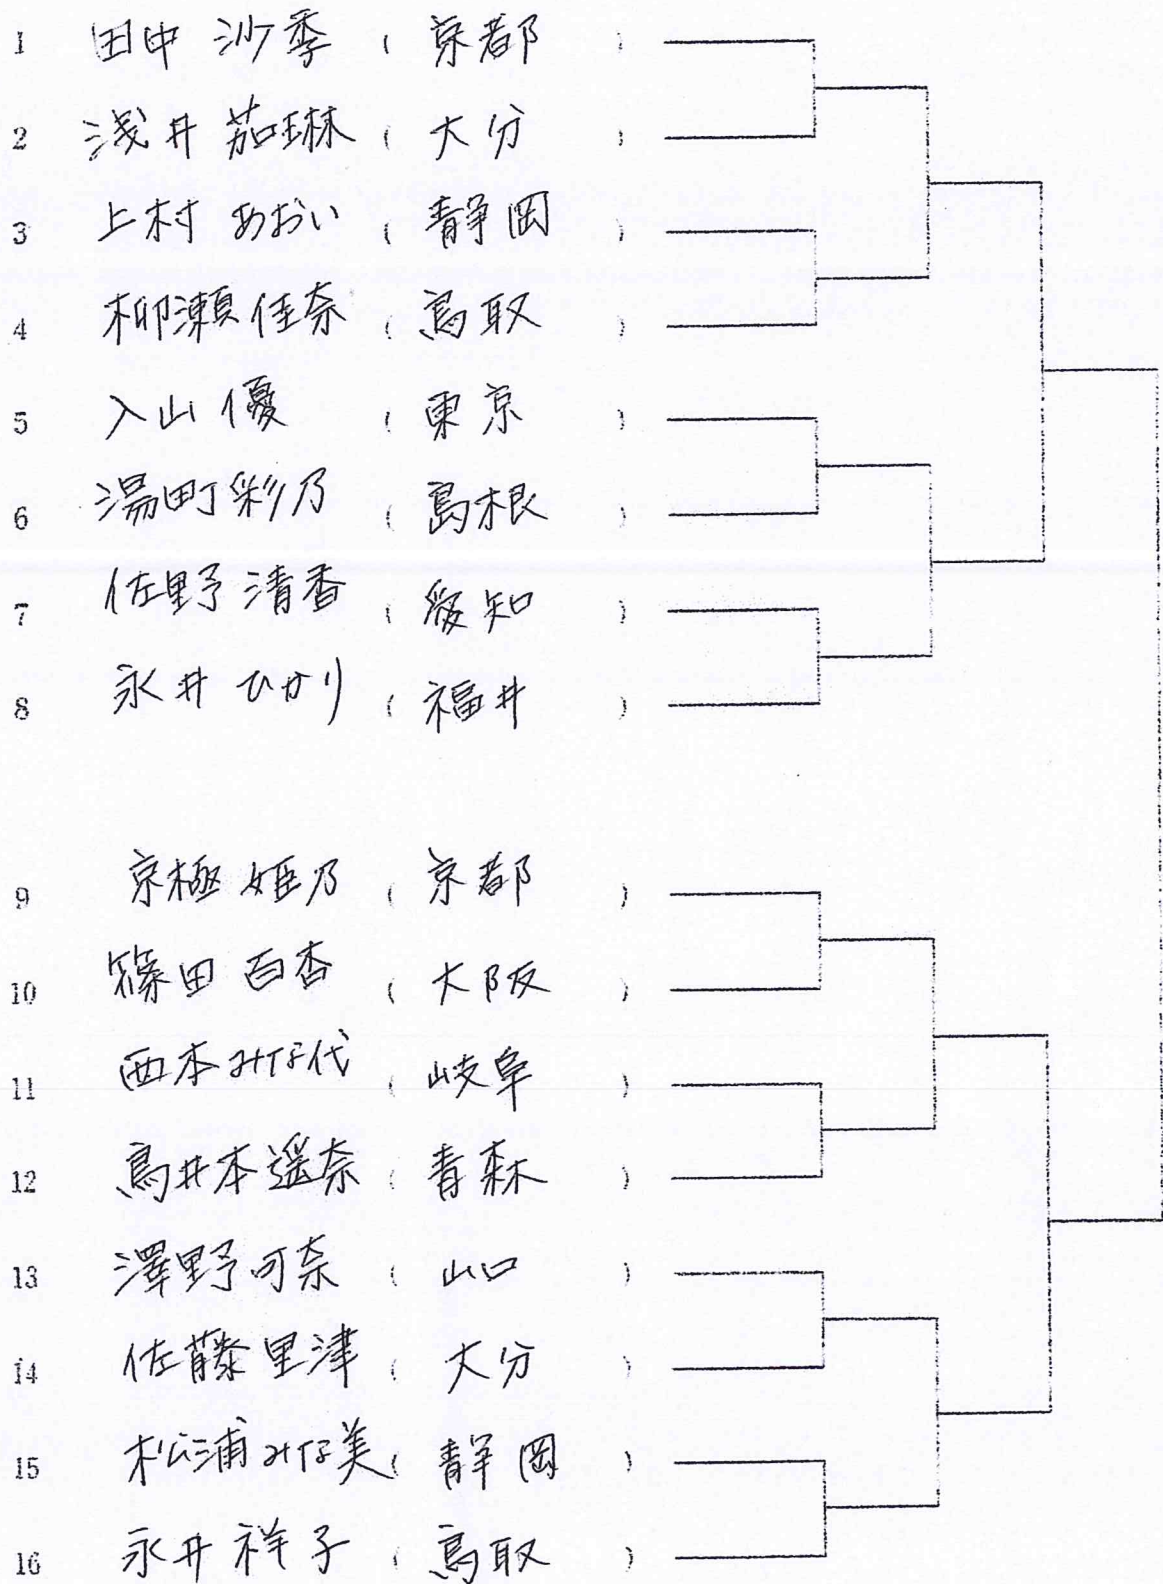 1 田中 沙季 (京都)
2 浅井 茄琳 (大分)
3 上村 あおい (静岡)
4 柳瀬佳奈 (鳥取)
5 入山 優 (東京)
6 湯町彩乃 (島根)
7 佐野 清香 (愛知)
8 永井 ひかり (福井)
9 京極 姫乃 (京都)
10 篠田 百杏 (大阪)
11 西本みな代 (岐阜)
12 鳥井本遥奈 (青森)
13 澤野可奈 (山口)
14 佐藤里津 (大分)
15 松浦みな美 (静岡)
16 永井 祥子 (鳥取)